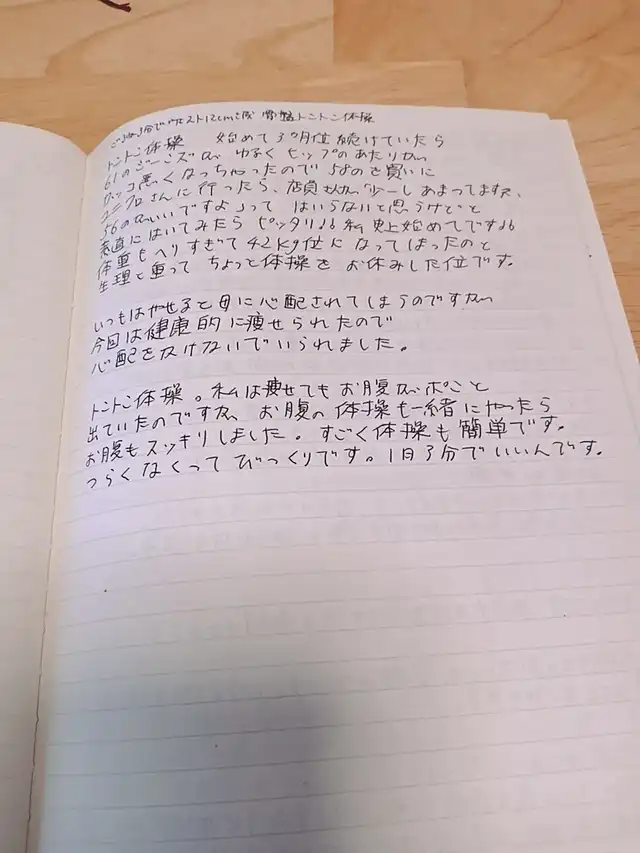 3分でウエスト12cm減 骨盤トントン体操
トントン体操 始めて3ヶ月位続けていたら
61のジーンズが ゆるく ヒップのあたりが
カッコ悪くなっちゃったので 58のを買いに
ユニクロさんに行ったら、店員さんが「少しあまってますね、
56のがいいですよ」って はいらないと思うけどと
素直にはいてみたら ピッタリ♪♪ 私史上始めてです♪♪
体重もへりすぎて 42kg位になってしまったのと
生理と重って ちょっと体操を お休みした位です。
いつもはやせると母に心配されてしまうのですが
今回は健康的に痩せられたので
心配をかけないでいられました。
トントン体操。私は痩せてもお腹がポコと
出ていたのですが、お腹の体操も一緒にやったら
お腹もスッキリしました。すごく体操も簡単です。
つらくなくって びっくりです。1日3分でいいんです。